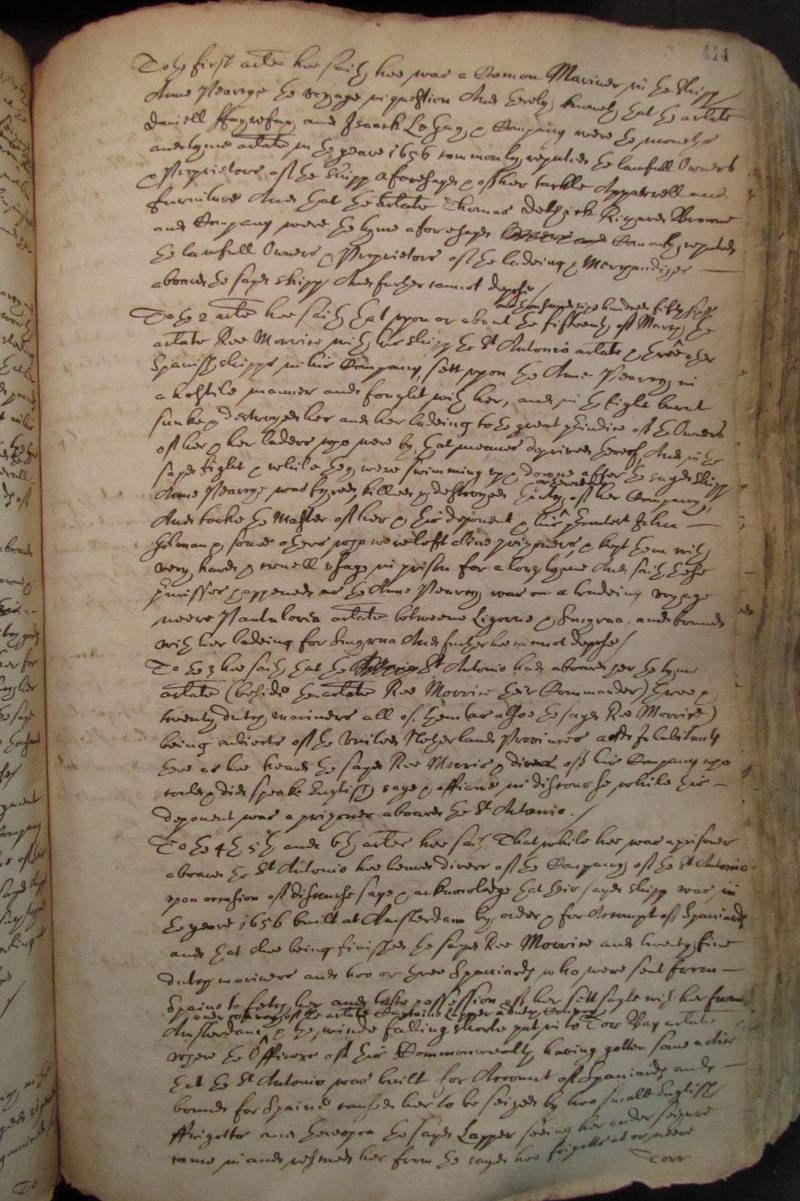 414
To the first article hee saith hee was a Comon Mariner in the shipp
Anne Pearcye the voyage in question And thereby knoweth that the arlate
Daniell ffayrefax, and Isaack Legay & Company were the moneths
and tyme arlate in the yeare 1656 commonly reputed the lawfull Owners
& Proprietors of the shipp aforesayd & of her tackle Apparrell and
furniture And that the arlate Thomas Delpick Richard Browne
and Company were the tyme aforesayd Comonly reputed
the lawfull Owners & Proprietors of the ladeing & Merchandizes
aboard the sayd shipp And further cannot depose /
one thousand six hundred fifty six
To the 2 article hee saith that upon or about the fifteenth of March the
arlate Ree Morrice with his shipp the St Antonio arlate & three other
Spanish shipps in his Company, sett upon the Anne Pearcye in
a hostile manner and fought with her, and in the fight burnt
sunke & destroyed her and her ladeing to the great prejudice of the Owners
of her & her laders who were by that meanes deprived thereof, And in the
sayd fight & while they were swimming up & downe after the sayd shipp
Anne Pearcye was fyred killed & destroyed thirty of her Company,
And tooke the Master of her & this deponent & his precontest John
Gilman & some others who were left alive prisoners, & kept them with
very hard & cruell usage in prison for a long tyme And saith these
premisses happened as the Anne Pearcye was on a tradeing voyage
neere Pantalaria arlate betweene Ligorne & Smyrna, and bound
with her ladeing for Smyrna And further he cannot depose /
To the 3 hee saith that the St Antonio had aboard her the tyme
arlate (beside the arlate Ree Morrice their Commander) three &
twenty dutch mariners all of them (as alsoe the sayd Ree Morrice)
being natives of the United Netherlands Provinces and Inhabitants
there as hee heard the sayd Ree Morrice & divers of his Company who
could & did speake English saye & affirme in discourse while this
deponent was a prizoner aboard the St Antonio. /
To the 4th 5th and 6th articles hee saith That while hee was a prisoner
aboard the St Antonio hee heard divers of the Company of the St Antonio
upon occasion of discourse saye & acknowledge that their sayd shipp was in
the yeare 1656 built at Amsterdam by order & for Accompt of Spaniards
and that shee being finished the sayd Ree Morrice and twenty five
dutch mariners and two or three Spaniards who were sent from
Spaine to fetch her and take possession of her sett sayle with her from
Amsterdam, & the winde falling shorte putt into Torr Bay arlate
where the Officers of this Commonwealth having gotten some
that the St Antonio was built for Account of Spaniards and
bound for Spaine caused her to be seized by two small English
ffrigotts and thereupon the sayd Lapper seeing her under seizure
came in and rescued her from the sayd two frigotts at or neere
Torr